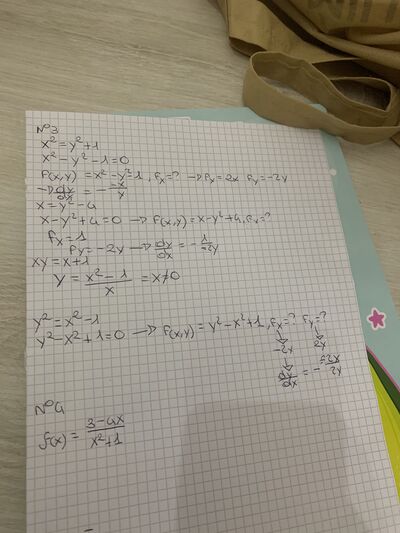 N°3
x² = y² + 1
x² - y² - 1 = 0
F(x,y) = x² - y² - 1, Fx = ? → Fx = 2x Fy = -2y
x = y² - 4
x - y² + 4 = 0 → F(x,y) = x - y² + 4, Fx = ?
fx = 1
Fy = -2y → dy/dx = - 1/-2y
xy = x + 1
y = x² - 1/x = x ≠ 0
y² = x² - 1
y² - x² + 1 = 0 → F(x,y) = y² - x² + 1, Fx = ? Fy = ?
-2x 2x
dy/dx = - -2x/2y
N°4
f(x) = 3 - 4x/x² + 1